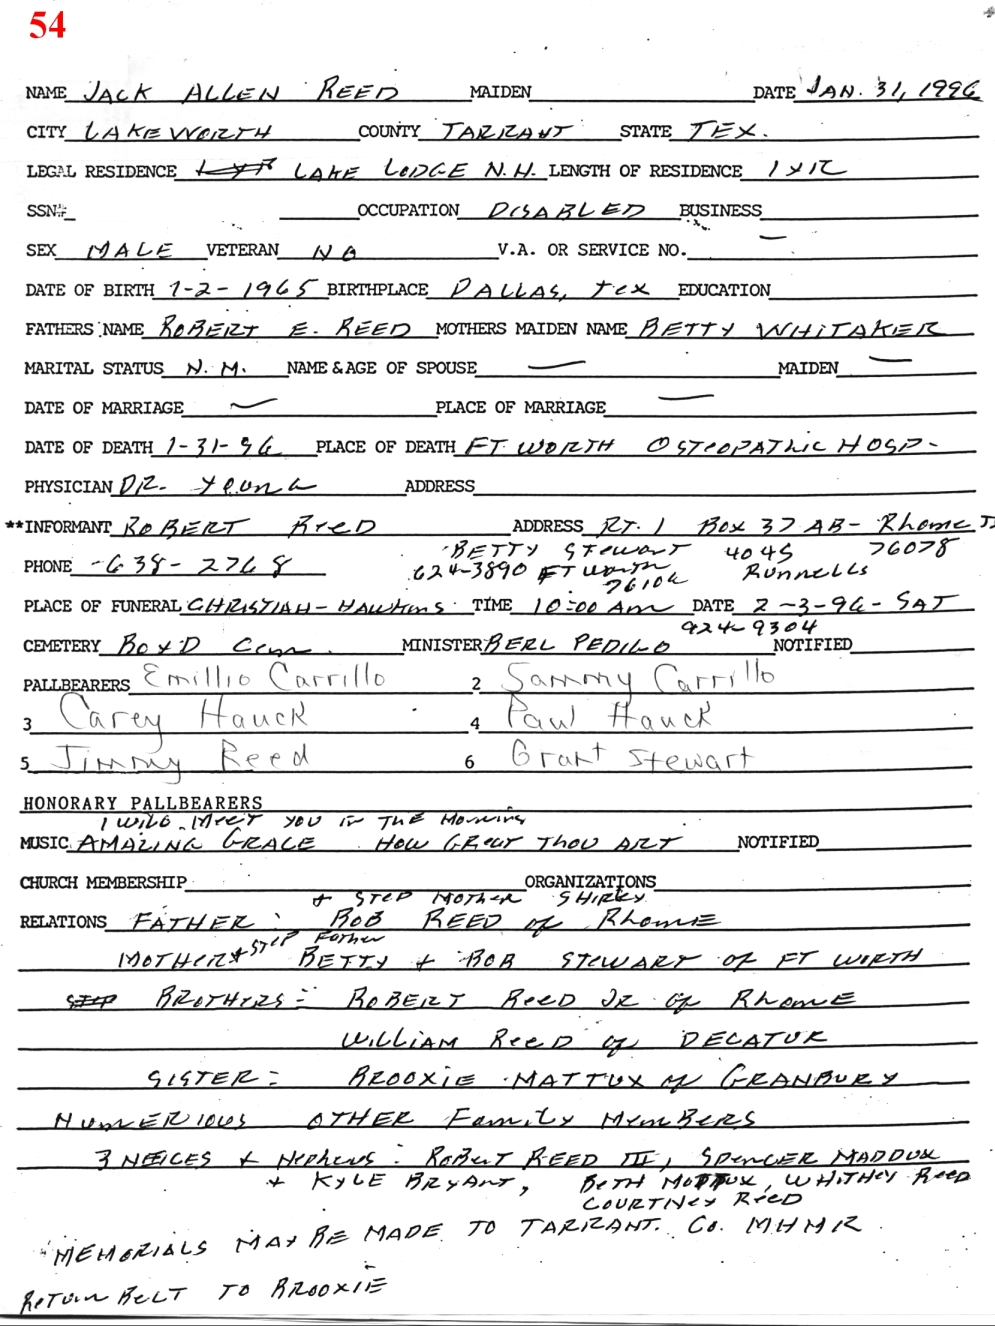 54
NAME JACK ALLEN REED MAIDEN DATE JAN. 31, 1996
CITY LAKE WORTH COUNTY TARRANT STATE TEX.
LEGAL RESIDENCE LAKE LODGE N.H. LENGTH OF RESIDENCE 1 YR
SSN# OCCUPATION DISABLED BUSINESS
SEX MALE VETERAN NO V.A. OR SERVICE NO. —
DATE OF BIRTH 1-2-1965 BIRTHPLACE DALLAS, Tex EDUCATION
FATHERS NAME ROBERT E. REED MOTHERS MAIDEN NAME BETTY WHITAKER
MARITAL STATUS N.M. NAME & AGE OF SPOUSE — MAIDEN —
DATE OF MARRIAGE — PLACE OF MARRIAGE —
DATE OF DEATH 1-31-96 PLACE OF DEATH FT WORTH OSTEOPATHIC HOSP-
PHYSICIAN DR. YOUNG ADDRESS
**INFORMANT ROBERT REED ADDRESS RT. 1 BOX 37 AB- Rhome
BETTY STEWART 4045 76078
PHONE -638-2768 624-3890 FT Worth RUNNELLS
76106
PLACE OF FUNERAL CHRISTIAN-HAWKINS TIME 10:00 AM DATE 2-3-96-SAT
924-9304
CEMETERY BOYD Cem. MINISTER BERL PEDIGO NOTIFIED
PALLBEARERS Emillio Carrillo 2 Sammy Carrillo
3 Carey Hauck 4 Paul Hauck
5 Jimmy Reed 6 Grant Stewart
HONORARY PALLBEARERS
I WILL MEET YOU IN THE MORNING
MUSIC AMAZING GRACE HOW GREAT THOU ART NOTIFIED
CHURCH MEMBERSHIP ORGANIZATIONS
+ STEP MOTHER SHIRLEY
RELATIONS FATHER: BOB REED of Rhome
MOTHER + STEP Father BETTY + BOB STEWART OF FT WORTH
STEP BROTHERS: ROBERT REED JR of Rhome
WILLIAM REED of DECATUR
SISTER: BROOXIE MATTUX of GRANBURY
NUMERIOUS OTHER Family Members
3 NEICES + Nephews: ROBERT REED III, SPENCER MADDUX
+ KYLE BRYANT, BETH MATTUX, WHITNEY REED
COURTNEY REED
MEMORIALS MAY BE MADE TO TARRANT. CO. MHMR
RETURN BELT TO BROOXIE